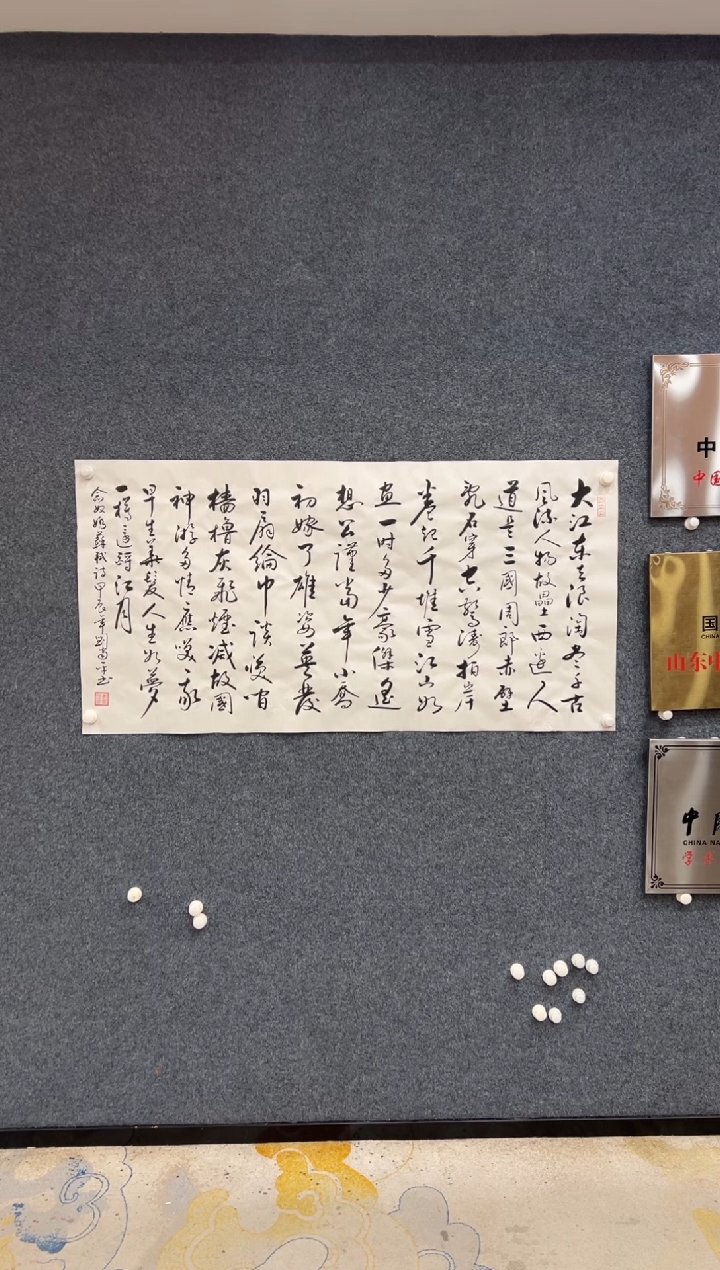 大江东去浪淘尽千古
风流人物故垒西边人
道是三國周郎赤壁
乱石穿空驚濤拍岸
卷起千堆雪江山如
画一时多少豪傑遥
想公瑾當年小喬
初嫁了雄姿英發
羽扇綸巾談笑间
樯橹灰飛煙滅故國
神游多情應笑我
早生華髪人生如夢
一樽還酹江月
念奴娇蘇軾詩甲辰年
中
中国
国
CHINA
山东
中
CHINA NA